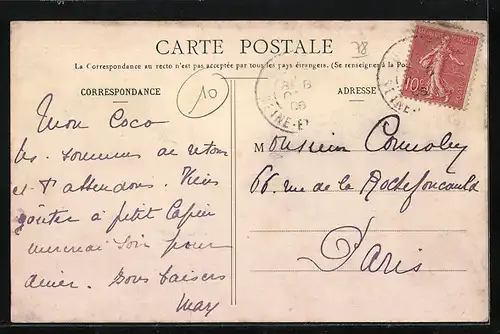 CARTE POSTALE
78
La Correspondance au recto n'est pas acceptée par tous les pays étrangers. (Se renseigner à la Poste
CORRESPONDANCE
10
ADRESSE
08
SEINE-E
10c
Mon Coco
sommes de retour
et t'attendons. Viens
goûter à petit
mercredi soir pour
diner. Bons baisers
May
Monsieur
66 rue de la Rochefoucauld
Paris